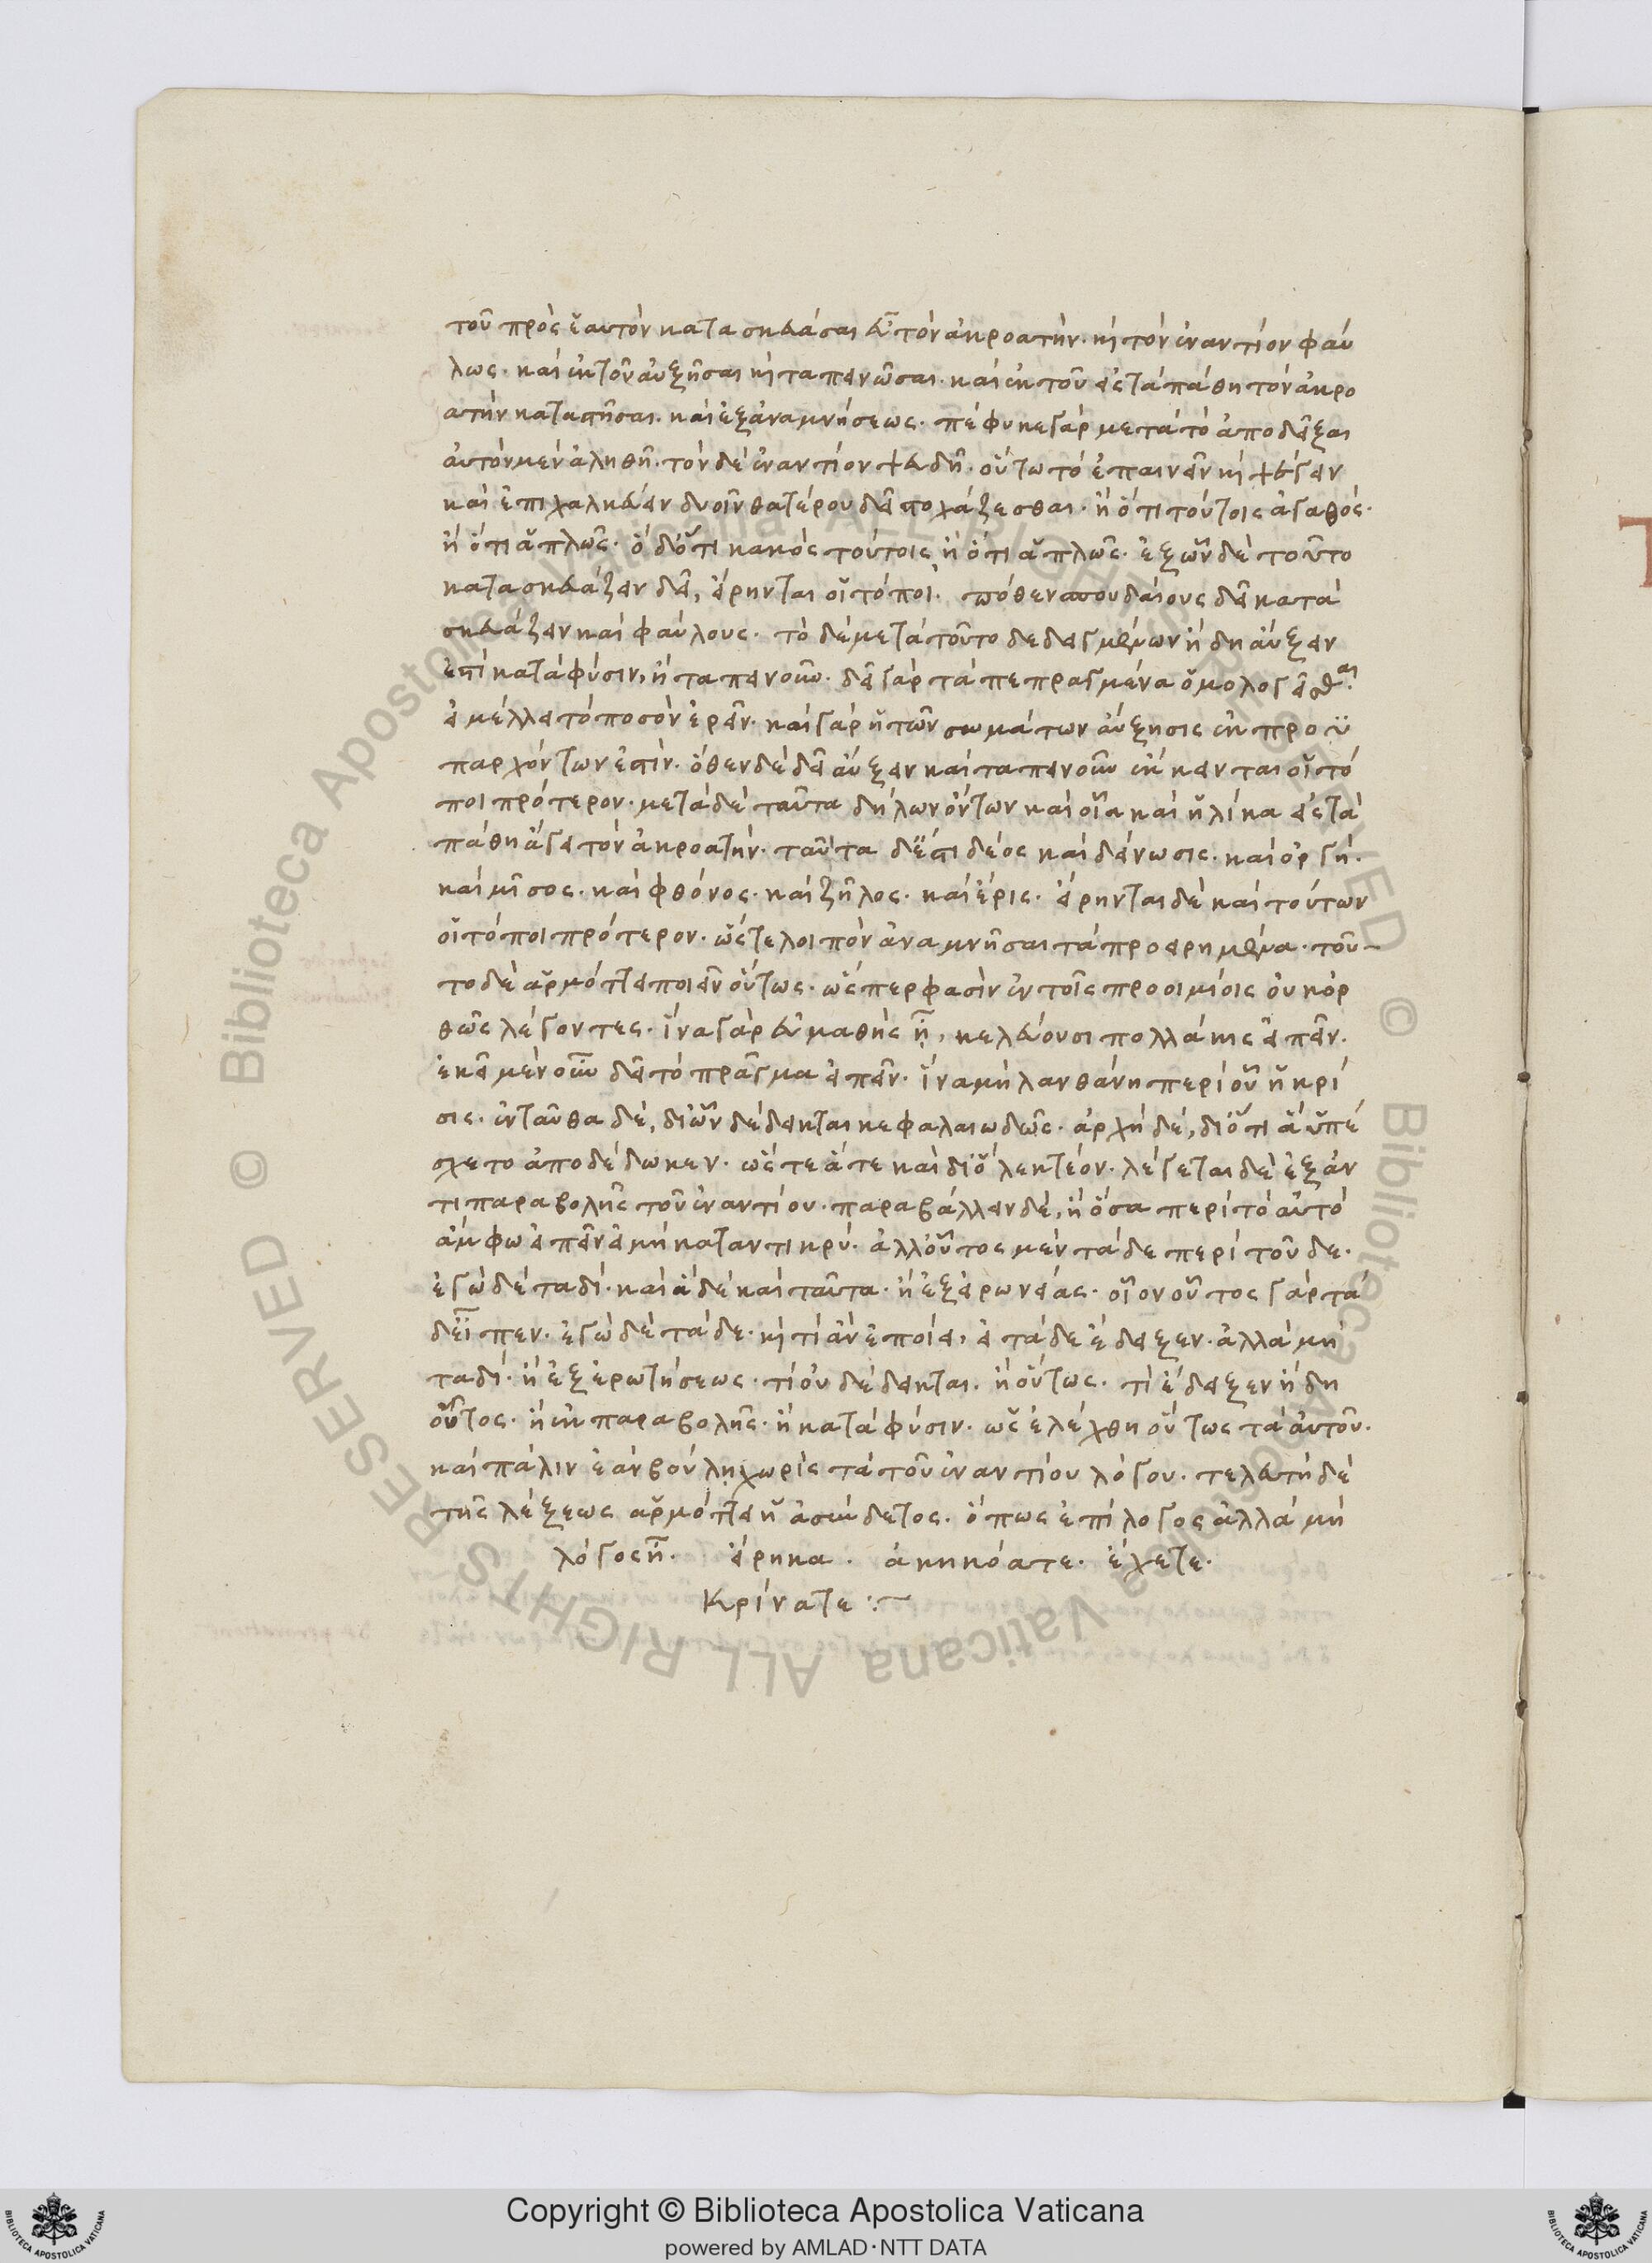 τοῦ πρὸς ἑαυτὸν κατασκευάσαι εὖ τὸν ἀκροατήν. καὶ τὸν ἐναντίον φαύ
λως. καὶ ἐκ τοῦ αὐξῆσαι καὶ ταπεινῶσαι. καὶ ἐκ τοῦ εἰς τὰ πάθη τὸν ἀκρο
ατὴν καταστῆσαι. καὶ ἐξ ἀναμνήσεως. πέφυκε γὰρ μετὰ τὸ ἀποδεῖξαι
αὐτὸν μὲν ἀληθῆ. τὸν δὲ ἐναντίον ψευδῆ. οὕτω τὸ ἐπαινεῖν καὶ ψέγειν
καὶ ἐπιχαλκεύειν δυοῖν θατέρου δεῖ στοχάζεσθαι. ἢ ὅτι τούτοις ἀγαθός.
ἢ ὅτι ἁπλῶς. ὁ δ' ὅτι κακὸς τούτοις ἢ ὅτι ἁπλῶς. ἐξ ὧν δὲ τοῦτο
κατασκευάζειν δεῖ, εἴρηνται οἱ τόποι. πόθεν σπουδαίους δεῖ κατα
σκευάζειν καὶ φαύλους. τὸ δὲ μετὰ τοῦτο δεδειγμένων ἤδη αὔξειν
ἐστὶ κατὰ φύσιν, ἢ ταπεινοῦν. δεῖ γὰρ τὰ πεπραγμένα ὁμολογεῖσθαι
εἰ μέλλει τὸ ποσὸν ἐρεῖν. καὶ γὰρ ἡ τῶν σωμάτων αὔξησις ἐκ προϋ
παρχόντων ἐστίν. ὅθεν δὲ δεῖ αὔξειν καὶ ταπεινοῦν ἔκκεινται οἱ τό
ποι πρότερον. μετὰ δὲ ταῦτα δήλων ὄντων καὶ οἷα καὶ ἡλίκα εἰς τὰ
πάθη ἄγει τὸν ἀκροατήν. ταῦτα δέ ἐστι δέος καὶ δείνωσις. καὶ ὀργή.
καὶ μῖσος. καὶ φθόνος. καὶ ζῆλος. καὶ ἔρις. εἴρηνται δὲ καὶ τούτων
οἱ τόποι πρότερον. ὥστε λοιπὸν ἀναμνῆσαι τὰ προειρημένα. τοῦ
το δὲ ἁρμόττει ποιεῖν οὕτως. ὥσπερ φασὶν ἐν τοῖς προοιμίοις οὐκ ὀρ
θῶς λέγοντες. ἵνα γὰρ εὐμαθὴς ᾖ, κελεύουσι πολλάκις εἰπεῖν.
ἐκεῖ μὲν οὖν δεῖ τὸ πρᾶγμα εἰπεῖν. ἵνα μὴ λανθάνη περὶ οὗ ἡ κρί
σις. ἐνταῦθα δέ, δι' ὧν δέδεικται κεφαλαιωδῶς. ἀρχὴ δέ, διότι ἃ ὑπέ
σχετο ἀποδέδωκεν. ὥστε ἅ τε καὶ δι' ὃ λεκτέον. λέγεται δὲ ἐξ ἀν
τιπαραβολῆς τοῦ ἐναντίου. παραβάλλειν δέ, ἢ ὅσα περὶ τὸ αὐτὸ
ἄμφω εἰπεῖν εἰ μὴ καταντικρύ. ἀλλ' οὗτος μὲν τάδε περὶ τοῦδε.
ἐγὼ δὲ ταδί. καὶ ἃ δὲ καὶ ταῦτα. ἢ ἐξ εἰρωνείας. οἷον οὗτος γὰρ τά
δ' εἶπεν. ἐγὼ δὲ τάδε. καὶ τί ἂν ἐποίει, εἰ τάδε ἔδειξεν. ἀλλὰ μὴ
ταδί. ἢ ἐξ ἐρωτήσεως. τί οὐ δέδεικται. ἢ οὕτως. τί ἔδειξεν ἤδη
οὗτος. ἢ ἐκ παραβολῆς. ἢ κατὰ φύσιν. ὡς ἐλέχθη οὕτως τὰ αὐτοῦ.
καὶ πάλιν ἐὰν βούλῃ χωρὶς τὰ τοῦ ἐναντίου λόγου. τελευτὴ δὲ
τῆς λέξεως ἁρμόττει ἡ ἀσύνδετος. ὅπως ἐπίλογος ἀλλὰ μὴ
λόγος ᾖ. εἴρηκα. ἀκηκόατε. ἔχετε.
Κρίνατε :~
Copyright © Biblioteca Apostolica Vaticana
powered by AMLAD·NTT DATA
© Biblioteca Apostolica Vaticana ALL RIGHTS RESERVED © Biblioteca Apostolica Vaticana ALL RIGHTS RESERVED
BIBLIOTECA APOSTOLICA VATICANA
BIBLIOTECA APOSTOLICA VATICANA